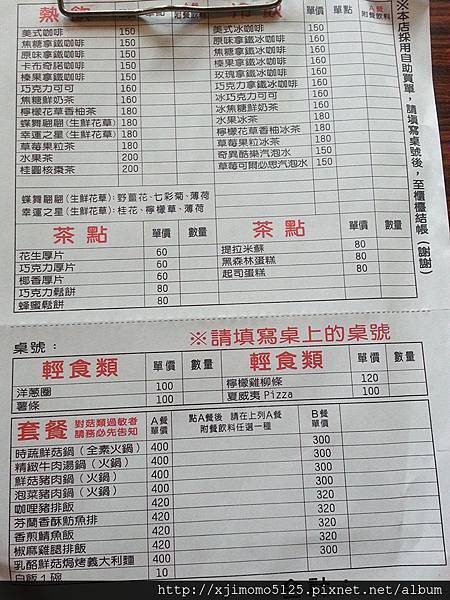 熱飲 單價 單點 A餐附餐飲料
美式咖啡 150
焦糖拿鐵咖啡 160
原味拿鐵咖啡 150
卡布奇諾咖啡 150
榛果拿鐵咖啡 160
巧克力可可 160
焦糖鮮奶茶 160
檸檬花草香柚茶 180
蝶舞翩翩(生鮮花草) 180
幸運之星(生鮮花草) 180
草莓果粒茶 180
水果茶 200
桂圓核棗茶 200
單價 單點 A餐附餐飲料
美式冰咖啡 150
焦糖拿鐵冰咖啡 160
原味拿鐵冰咖啡 150
榛果拿鐵冰咖啡 160
玫瑰拿鐵冰咖啡 160
巧克力拿鐵冰咖啡 160
冰巧克力可可 160
冰焦糖鮮奶茶 160
水果冰茶 180
檸檬花草香柚冰茶 180
草莓果粒冰茶 180
奇異酷樂汽泡水 150
草莓可爾必思汽泡水 150
蝶舞翩翩(生鮮花草):野薑花、七彩菊、薄荷
幸運之星(生鮮花草):桂花、檸檬草、薄荷
※本店採用自助買單,請填寫桌號後,至櫃檯結帳(謝謝)
茶點 單價 數量
花生厚片 60
巧克力厚片 60
椰香厚片 60
巧克力鬆餅 80
蜂蜜鬆餅 80
茶點 單價 數量
提拉米蘇 80
黑森林蛋糕 80
起司蛋糕 80
桌號: ※請填寫桌上的桌號
輕食類 單價 數量
洋蔥圈 100
薯條 100
輕食類 單價 數量
檸檬雞柳條 120
夏威夷Pizza 100
套餐 對菇類過敏者請務必先告知 A餐單價 點A餐後 請在上列A餐附餐飲料任選一種 B餐單價
時蔬鮮菇鍋(全素火鍋) 400 300
精緻牛肉湯鍋(火鍋) 400
鮮菇豬肉鍋(火鍋) 400 300
泡菜豬肉鍋(火鍋) 400 300
咖哩豬排飯 420 300
芬蘭香酥魴魚排 420 320
香煎鯖魚飯 420 320
椒麻雞腿排飯 420 320
乳酪鮮菇焗烤義大利麵 400 300
白飯1碗 10
http://xjimomo5125.pixnet.net/album